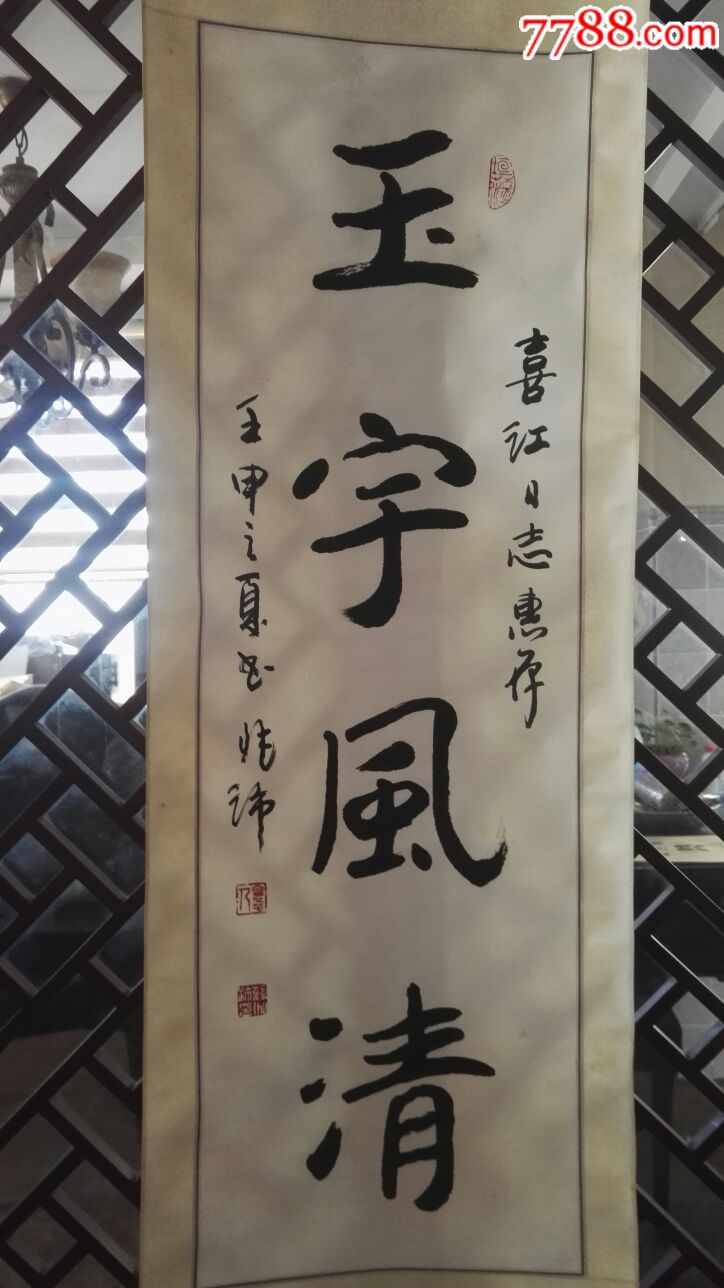 7788.com
喜江同志惠存
玉宇风清
壬申之夏书